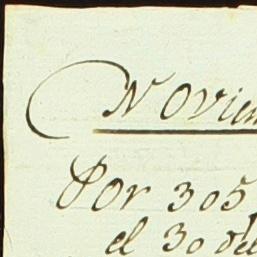 Novie
Por 305
el 30 del